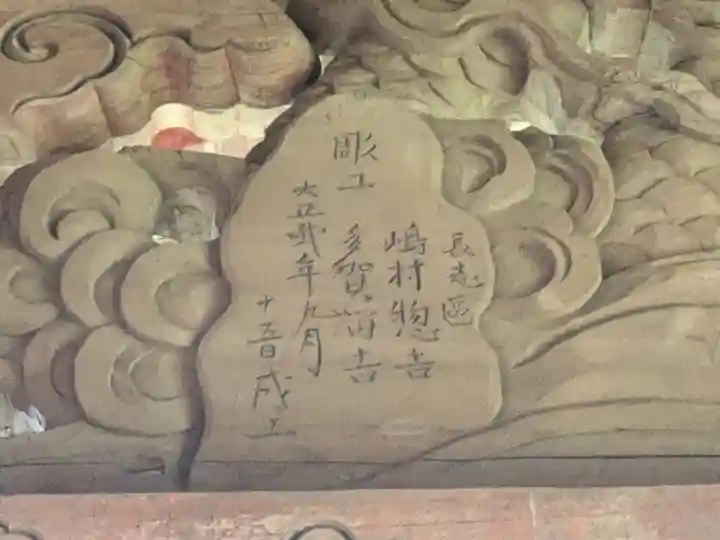 長志區
嶋村惣吉
彫工
多賀留吉
大正弐年九月
十五日成工